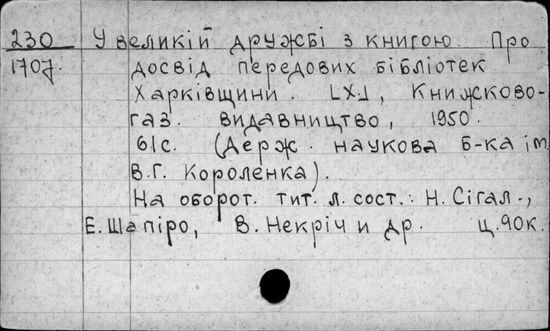 230 У великій дружбі з книгою. Про
1707. досвід передових бібліотек
Харківщини. [Х.], Книжково-
газ. видавництво, 1950.
61с. (Держ. наукова б-ка ім.
В.Г. Короленка).
На оборот. тит. л. сост.: Н. Сігал.,
Е. Шапіро, В. Некріч и др. ц.90к.